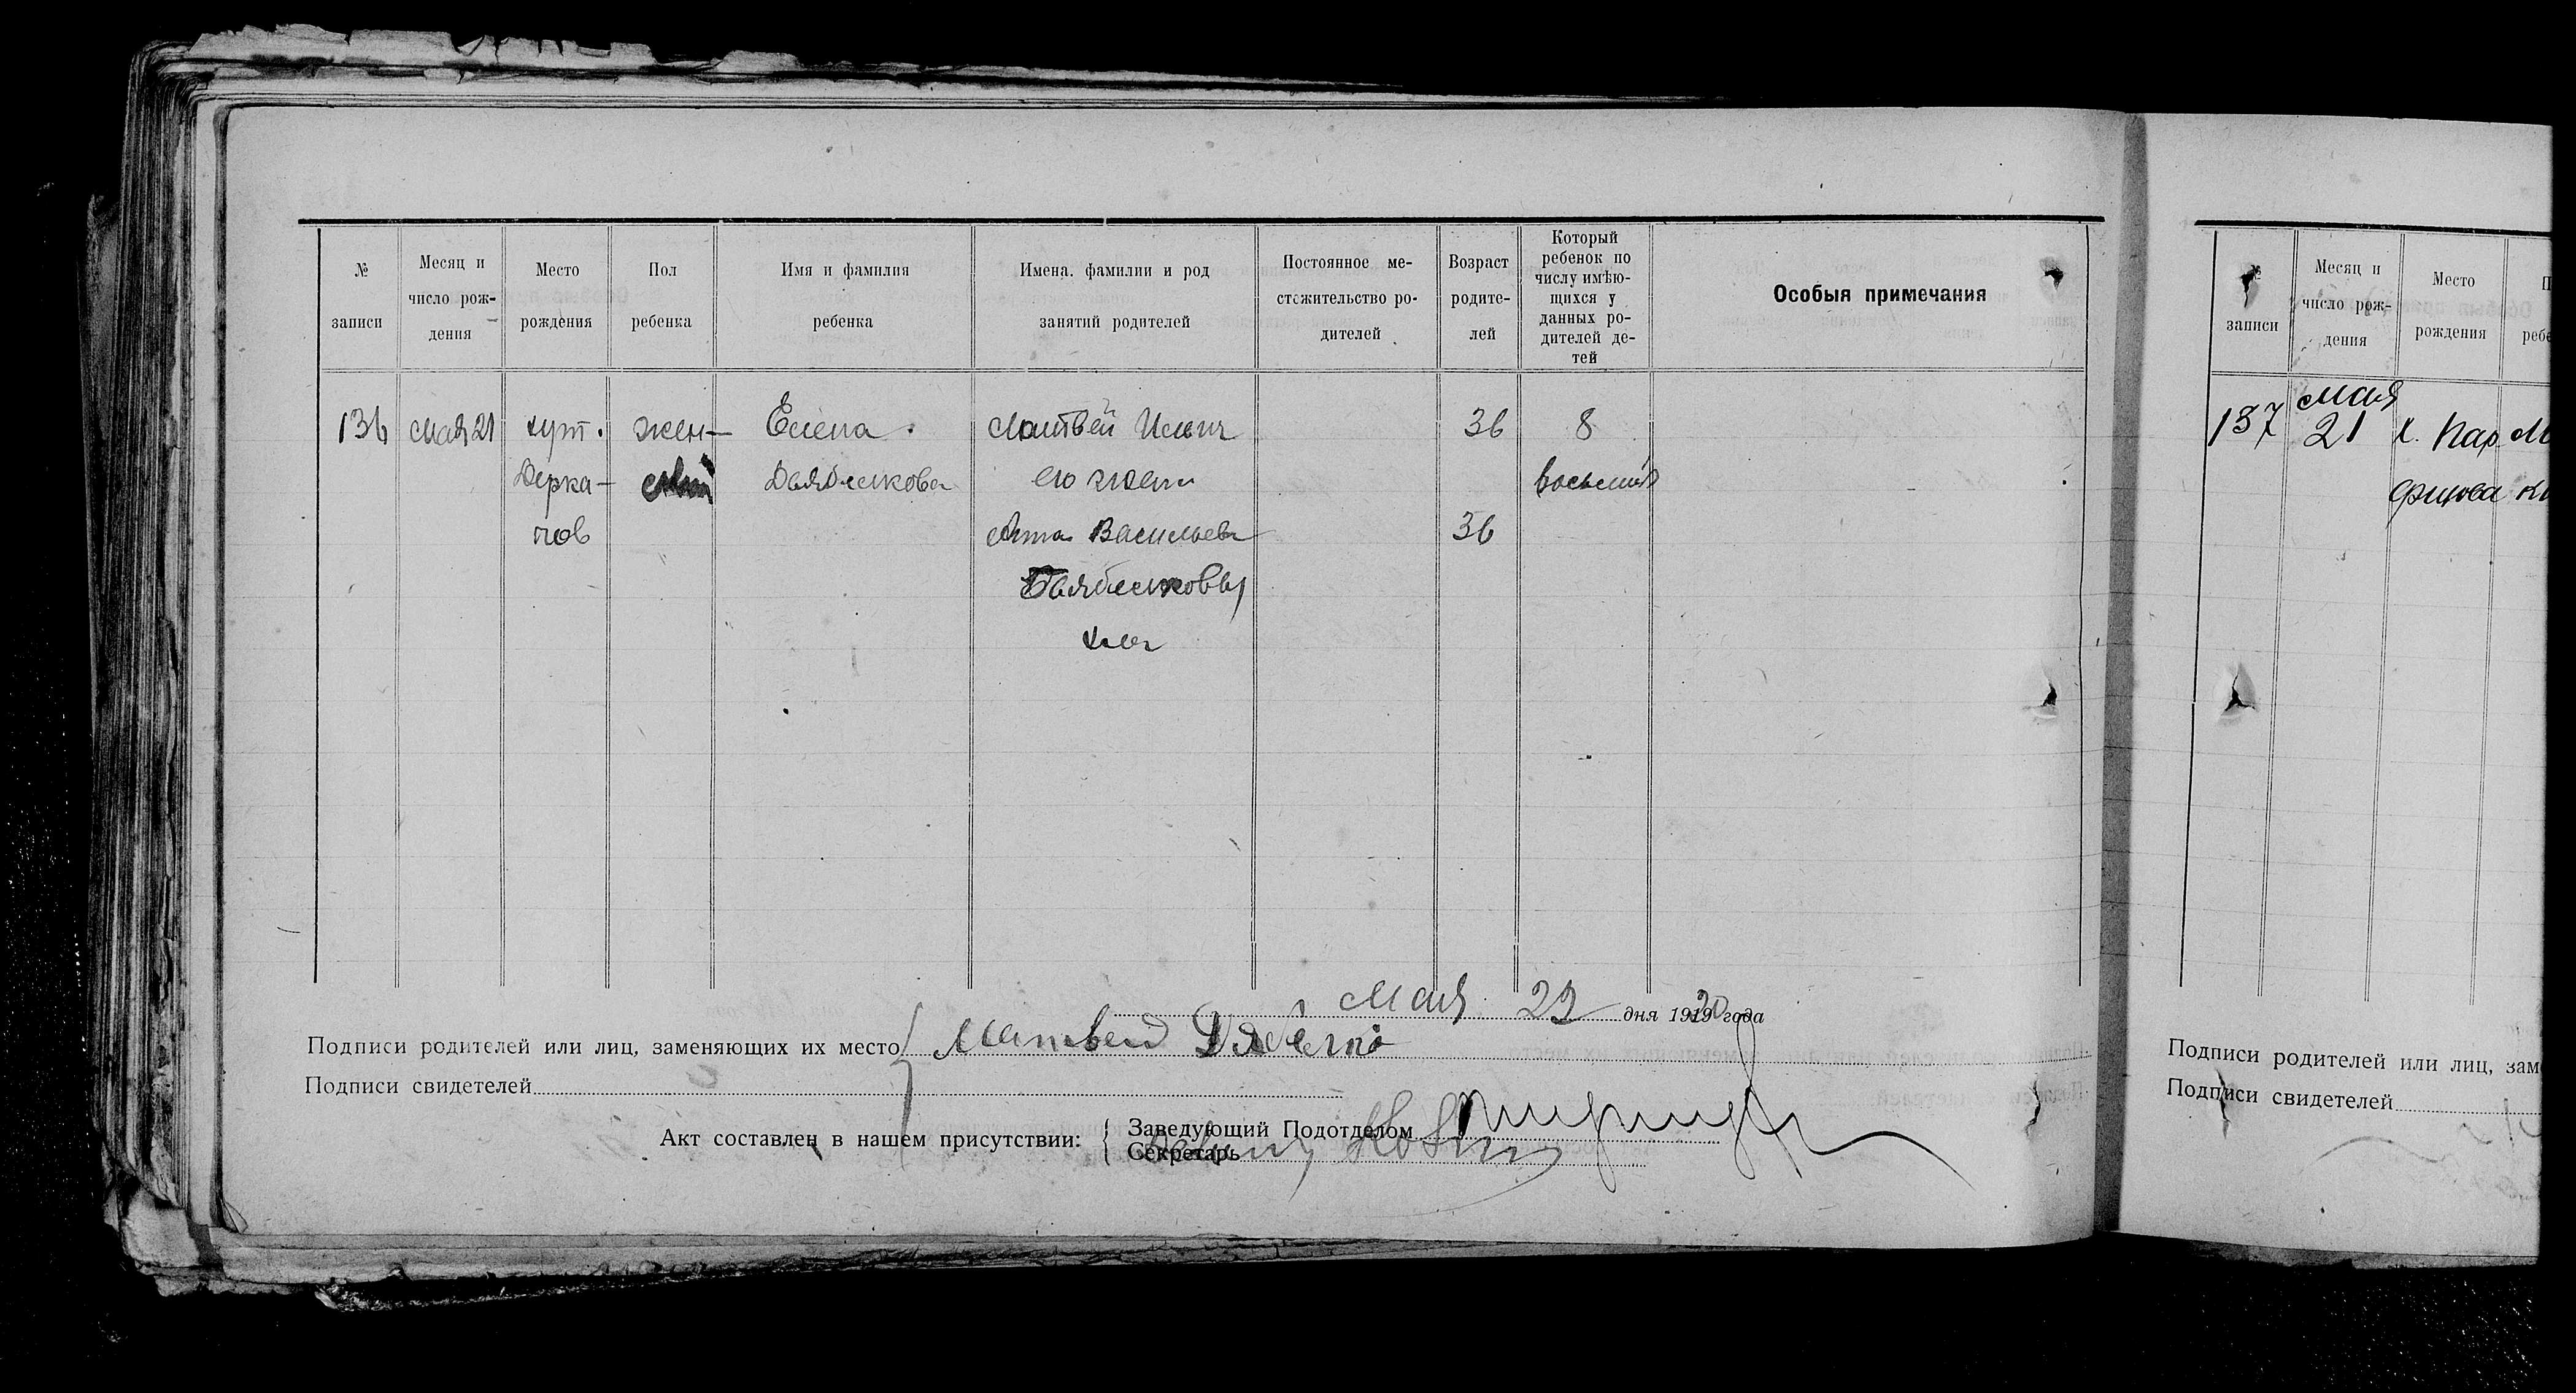 № записи
Месяц и число рождения
Место рождения
Пол ребенка
Имя и фамилия ребенка
Имена. фамилии и род занятий родителей
Постоянное местожительство родителей
Возраст родителей
Который ребенок по числу имѣющихся у данных родителей детей
Особыя примечания
136 мая 21 хут. жен- Елена Матвей Ильич 36 8
Дерка- ский его жена восьмий
чов Анна Васильева 36
Мая 22 дня 1920 года
Подписи родителей или лиц, заменяющих их место Матвей
Подписи свидетелей
Акт составлен в нашем присутствии: Заведующий Подотделом
Секретарь
№ записи
Месяц и число рождения
Место рождения
П
ребе
мая
137 21 х. Пар М
фицова
Подписи родителей или лиц, зам
Подписи свидетелей